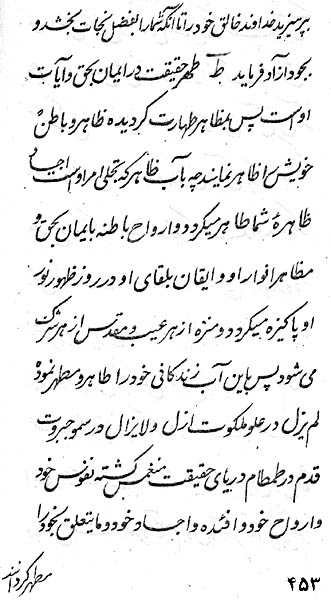 بپرستید خداوند خالق خود را تا آنکه شما را بفضل نجات بخشد و
بجود آزاد فرماید ط طهر حقیقت در ایمان بحق و آیات
اوست پس بمظاهر طهارت گردیده ظاهر و باطن
خویش را ظاهر نمایند چه بآب ظاهر که بتجلی امر اوست اجساد
ظاهرهٔ شما طاهر میگردد و ارواح باطنه بایمان بحق و
مظاهر انوار او و ایقان بلقای او در روز ظهور نور
او پاکیزه میگردد و منزه از هر عیب و مقدس از هر شرکت
می شود پس باین آب زندگانی خود را طاهر و مطهر نموده
لم یزل در علو ملکوت ازل و لایزال در سمو جبروت
قدم در طمطام دریای حقیقت منغمس گشته نفوس خود
و ارواح خود و افئده و اجساد خود و ما یتعلق بخود را
مطهر گردانند
۴۵۳